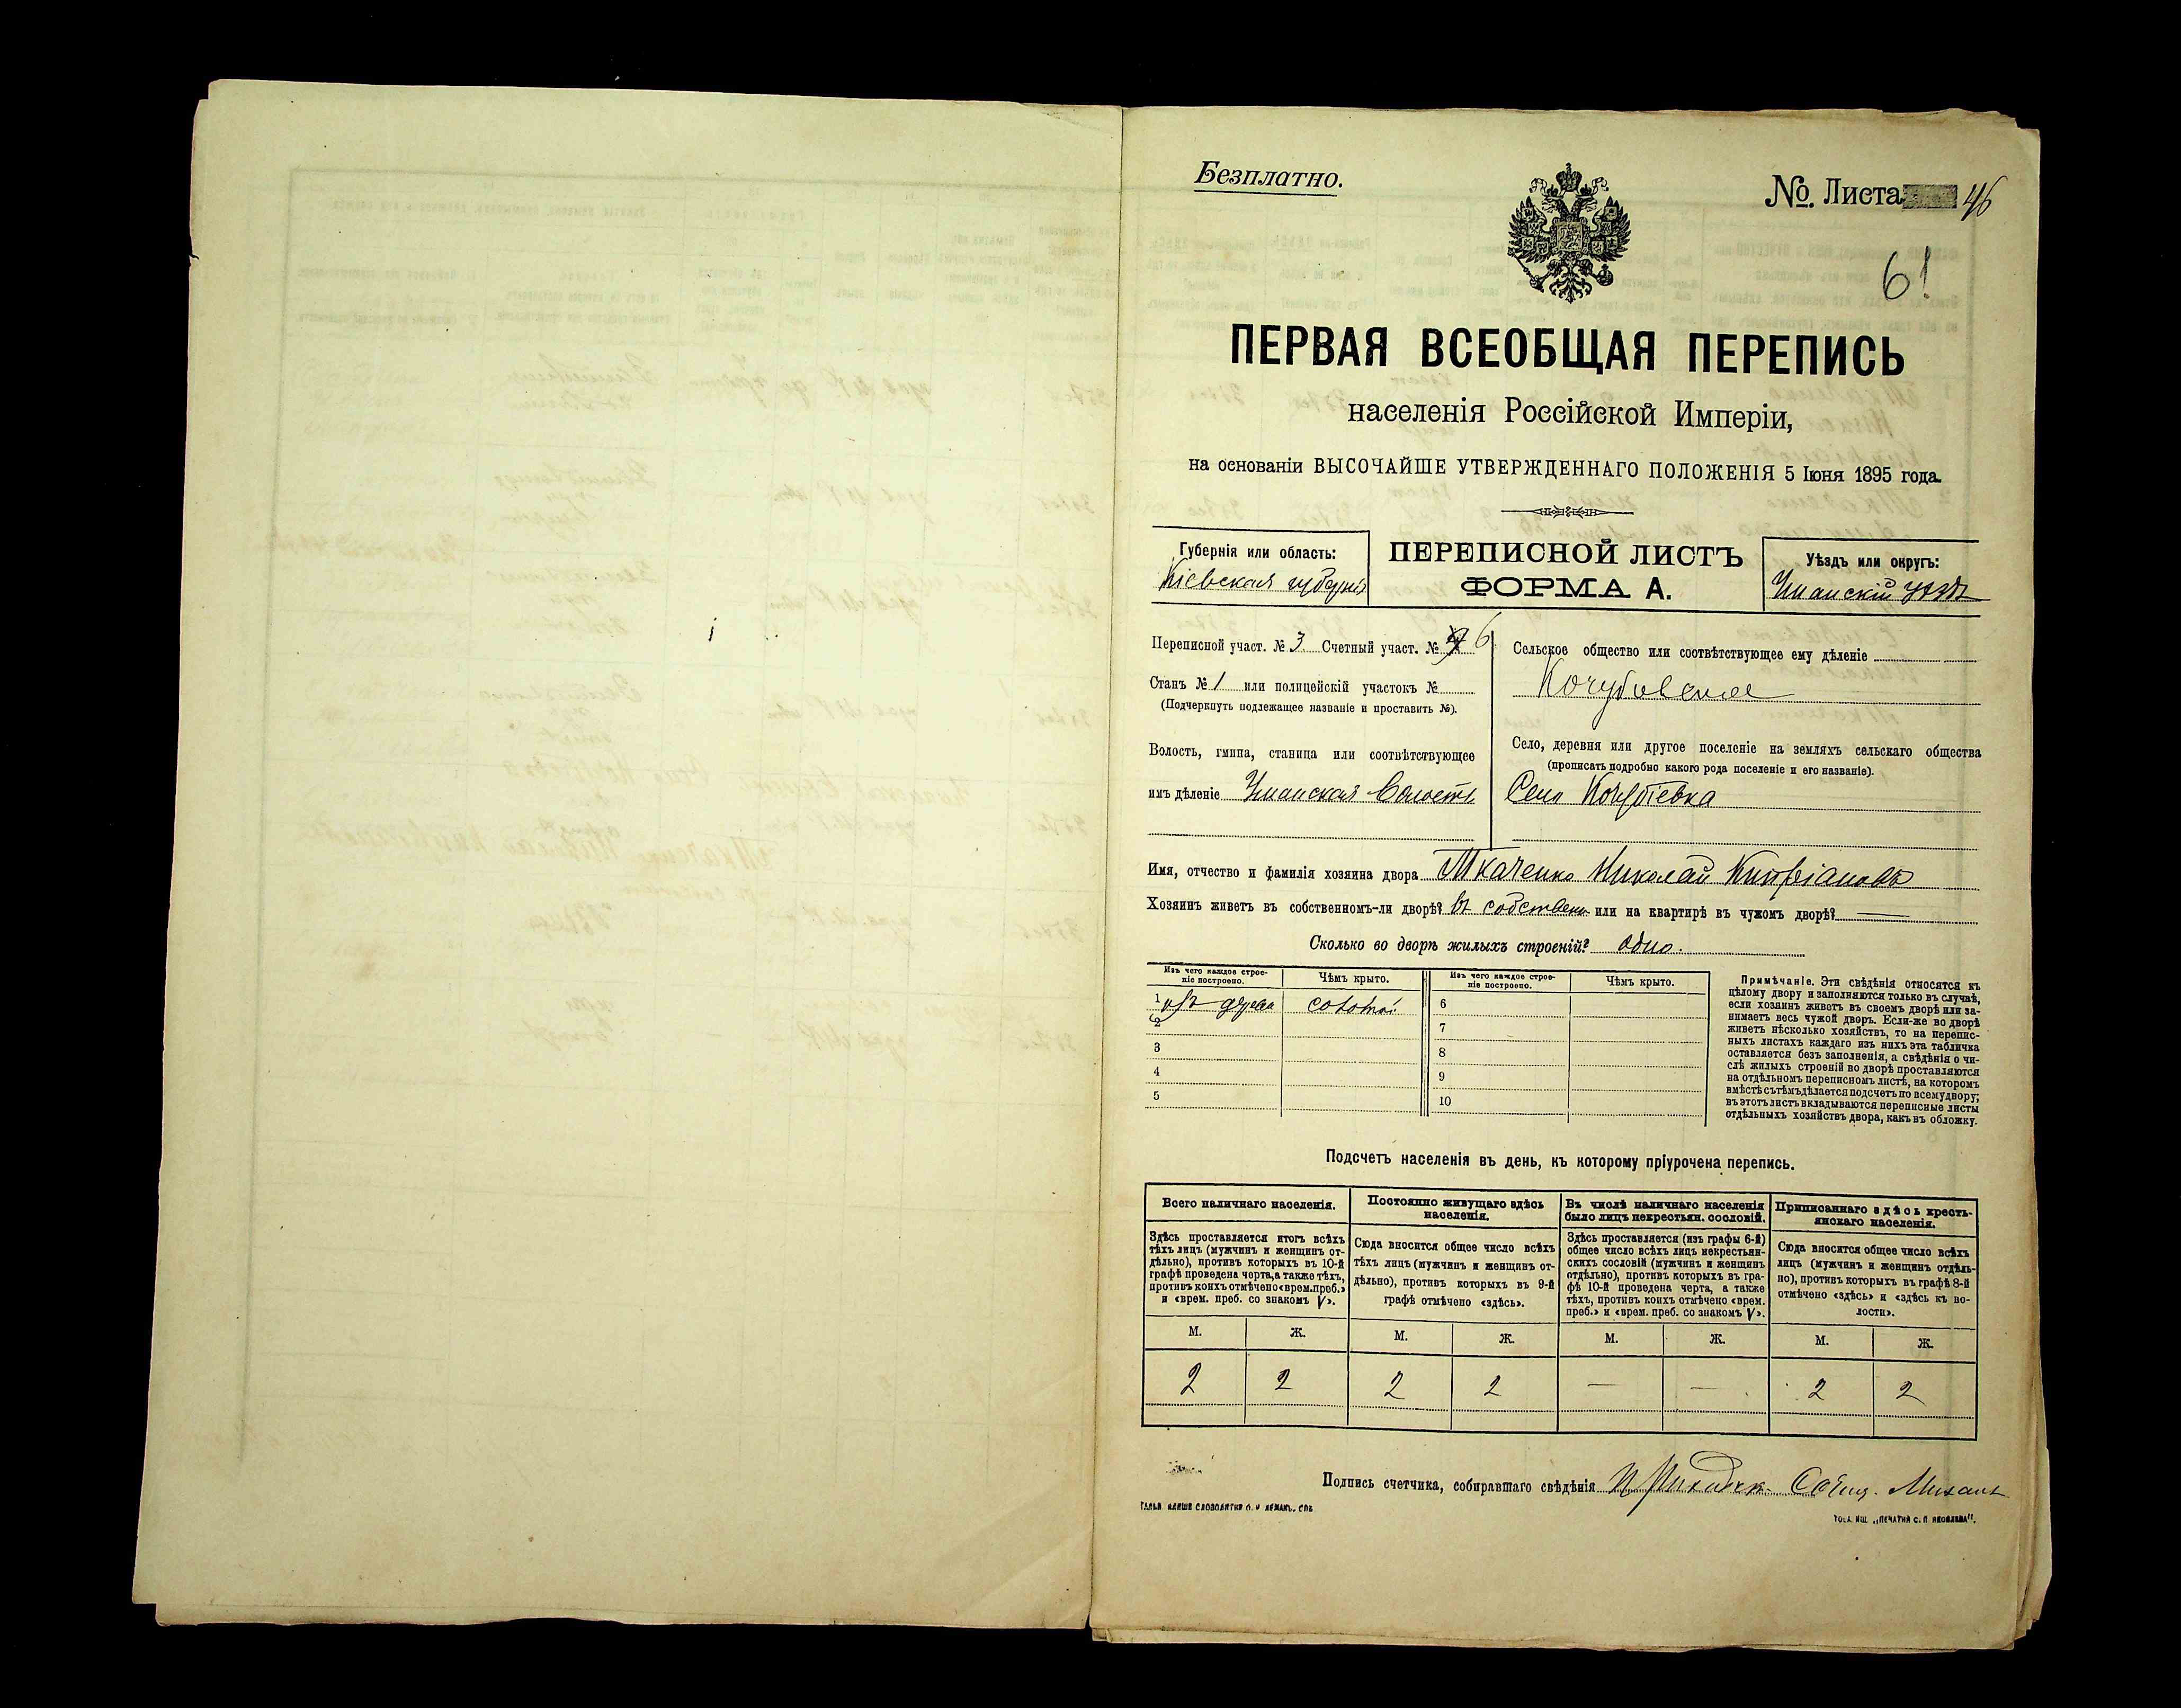 Безплатно.
№. Листа 46
61
ПЕРВАЯ ВСЕОБЩАЯ ПЕРЕПИСЬ
населенія Россійской Имперіи,
на основаніи ВЫСОЧАЙШЕ УТВЕРЖДЕННАГО ПОЛОЖЕНІЯ 5 Іюня 1895 года.
Губернія или область:
Кіевская губернія
ПЕРЕПИСНОЙ ЛИСТЪ
ФОРМА А.
Уѣздъ или округъ:
Уманскій уѣздъ
Переписной участ. № 3 Счетный участ. № 6
Станъ № 1 или полицейскій участокъ №
(Подчеркнуть подлежащее названіе и проставить №).
Волость, гмина, станица или соотвѣтствующее
имъ дѣленіе Уманская Волость
Сельское общество или соотвѣтствующее ему дѣленіе
Кочубіевское
Село, деревня или другое поселеніе на земляхъ сельскаго общества
(прописать подробно какого рода поселеніе и его названіе).
Село Кочубіевка
Имя, отчество и фамилія хозяина двора Ткаченко Николай Кипріановъ
Хозяинъ живетъ въ собственномъ-ли дворѣ? въ собствен. или на квартирѣ въ чужомъ дворѣ? —
Сколько во дворѣ жилыхъ строеній? одно.
Изъ чего каждое строе-
ніе построено.
Чѣмъ крыто.
Изъ чего каждое строе-
ніе построено.
Чѣмъ крыто.
1 изъ дерева соломой
6
2
7
3
8
4
9
5
10
Примѣчаніе. Эти свѣдѣнія относятся къ
цѣлому двору и заполняются только въ случаѣ,
если хозяинъ живетъ въ своемъ дворѣ или за-
нимаетъ весь чужой дворъ. Если-же во дворѣ
живетъ нѣсколько хозяйствъ, то на перепис-
ныхъ листахъ каждаго изъ нихъ эта табличка
оставляется безъ заполненія, а свѣдѣнія о чи-
слѣ жилыхъ строеній во дворѣ проставляются
на отдѣльномъ переписномъ листѣ, на которомъ
вмѣстѣ съ тѣмъ дѣлается подсчетъ по всему двору;
въ этотъ листъ вкладываются переписные листы
отдѣльныхъ хозяйствъ двора, какъ въ обложку.
Подсчетъ населенія въ день, къ которому пріурочена перепись.
Всего наличнаго населенія.
Здѣсь проставляется итогъ всѣхъ
тѣхъ лицъ (мужчинъ и женщинъ от-
дѣльно), противъ которыхъ въ 10-й
графѣ проведена черта, а также тѣхъ,
противъ коихъ отмѣчено «врем. преб.»
и «врем. преб. со знакомъ V».
Постоянно живущаго здѣсь
населенія.
Сюда вносится общее число всѣхъ
тѣхъ лицъ (мужчинъ и женщинъ от-
дѣльно), противъ которыхъ въ 9-й
графѣ отмѣчено «здѣсь».
Въ числѣ наличнаго населенія
было лицъ некрестьян. сословій.
Здѣсь проставляется (изъ графы 6-й)
общее число всѣхъ лицъ некрестьян-
скихъ сословій (мужчинъ и женщинъ
отдѣльно), противъ которыхъ въ гра-
фѣ 10-й проведена черта, а также
тѣхъ, противъ коихъ отмѣчено «врем.
преб.» и «врем. преб. со знакомъ V».
Приписаннаго здѣсь кресть-
янскаго населенія.
Сюда вносится общее число всѣхъ
лицъ (мужчинъ и женщинъ отдѣль-
но), противъ которыхъ въ графѣ 8-й
отмѣчено «здѣсь» и «здѣсь къ во-
лости».
М. Ж. М. Ж. М. Ж. М. Ж.
2 2 2 2 — — 2 2
Подпись счетчика, собиравшаго свѣдѣнія